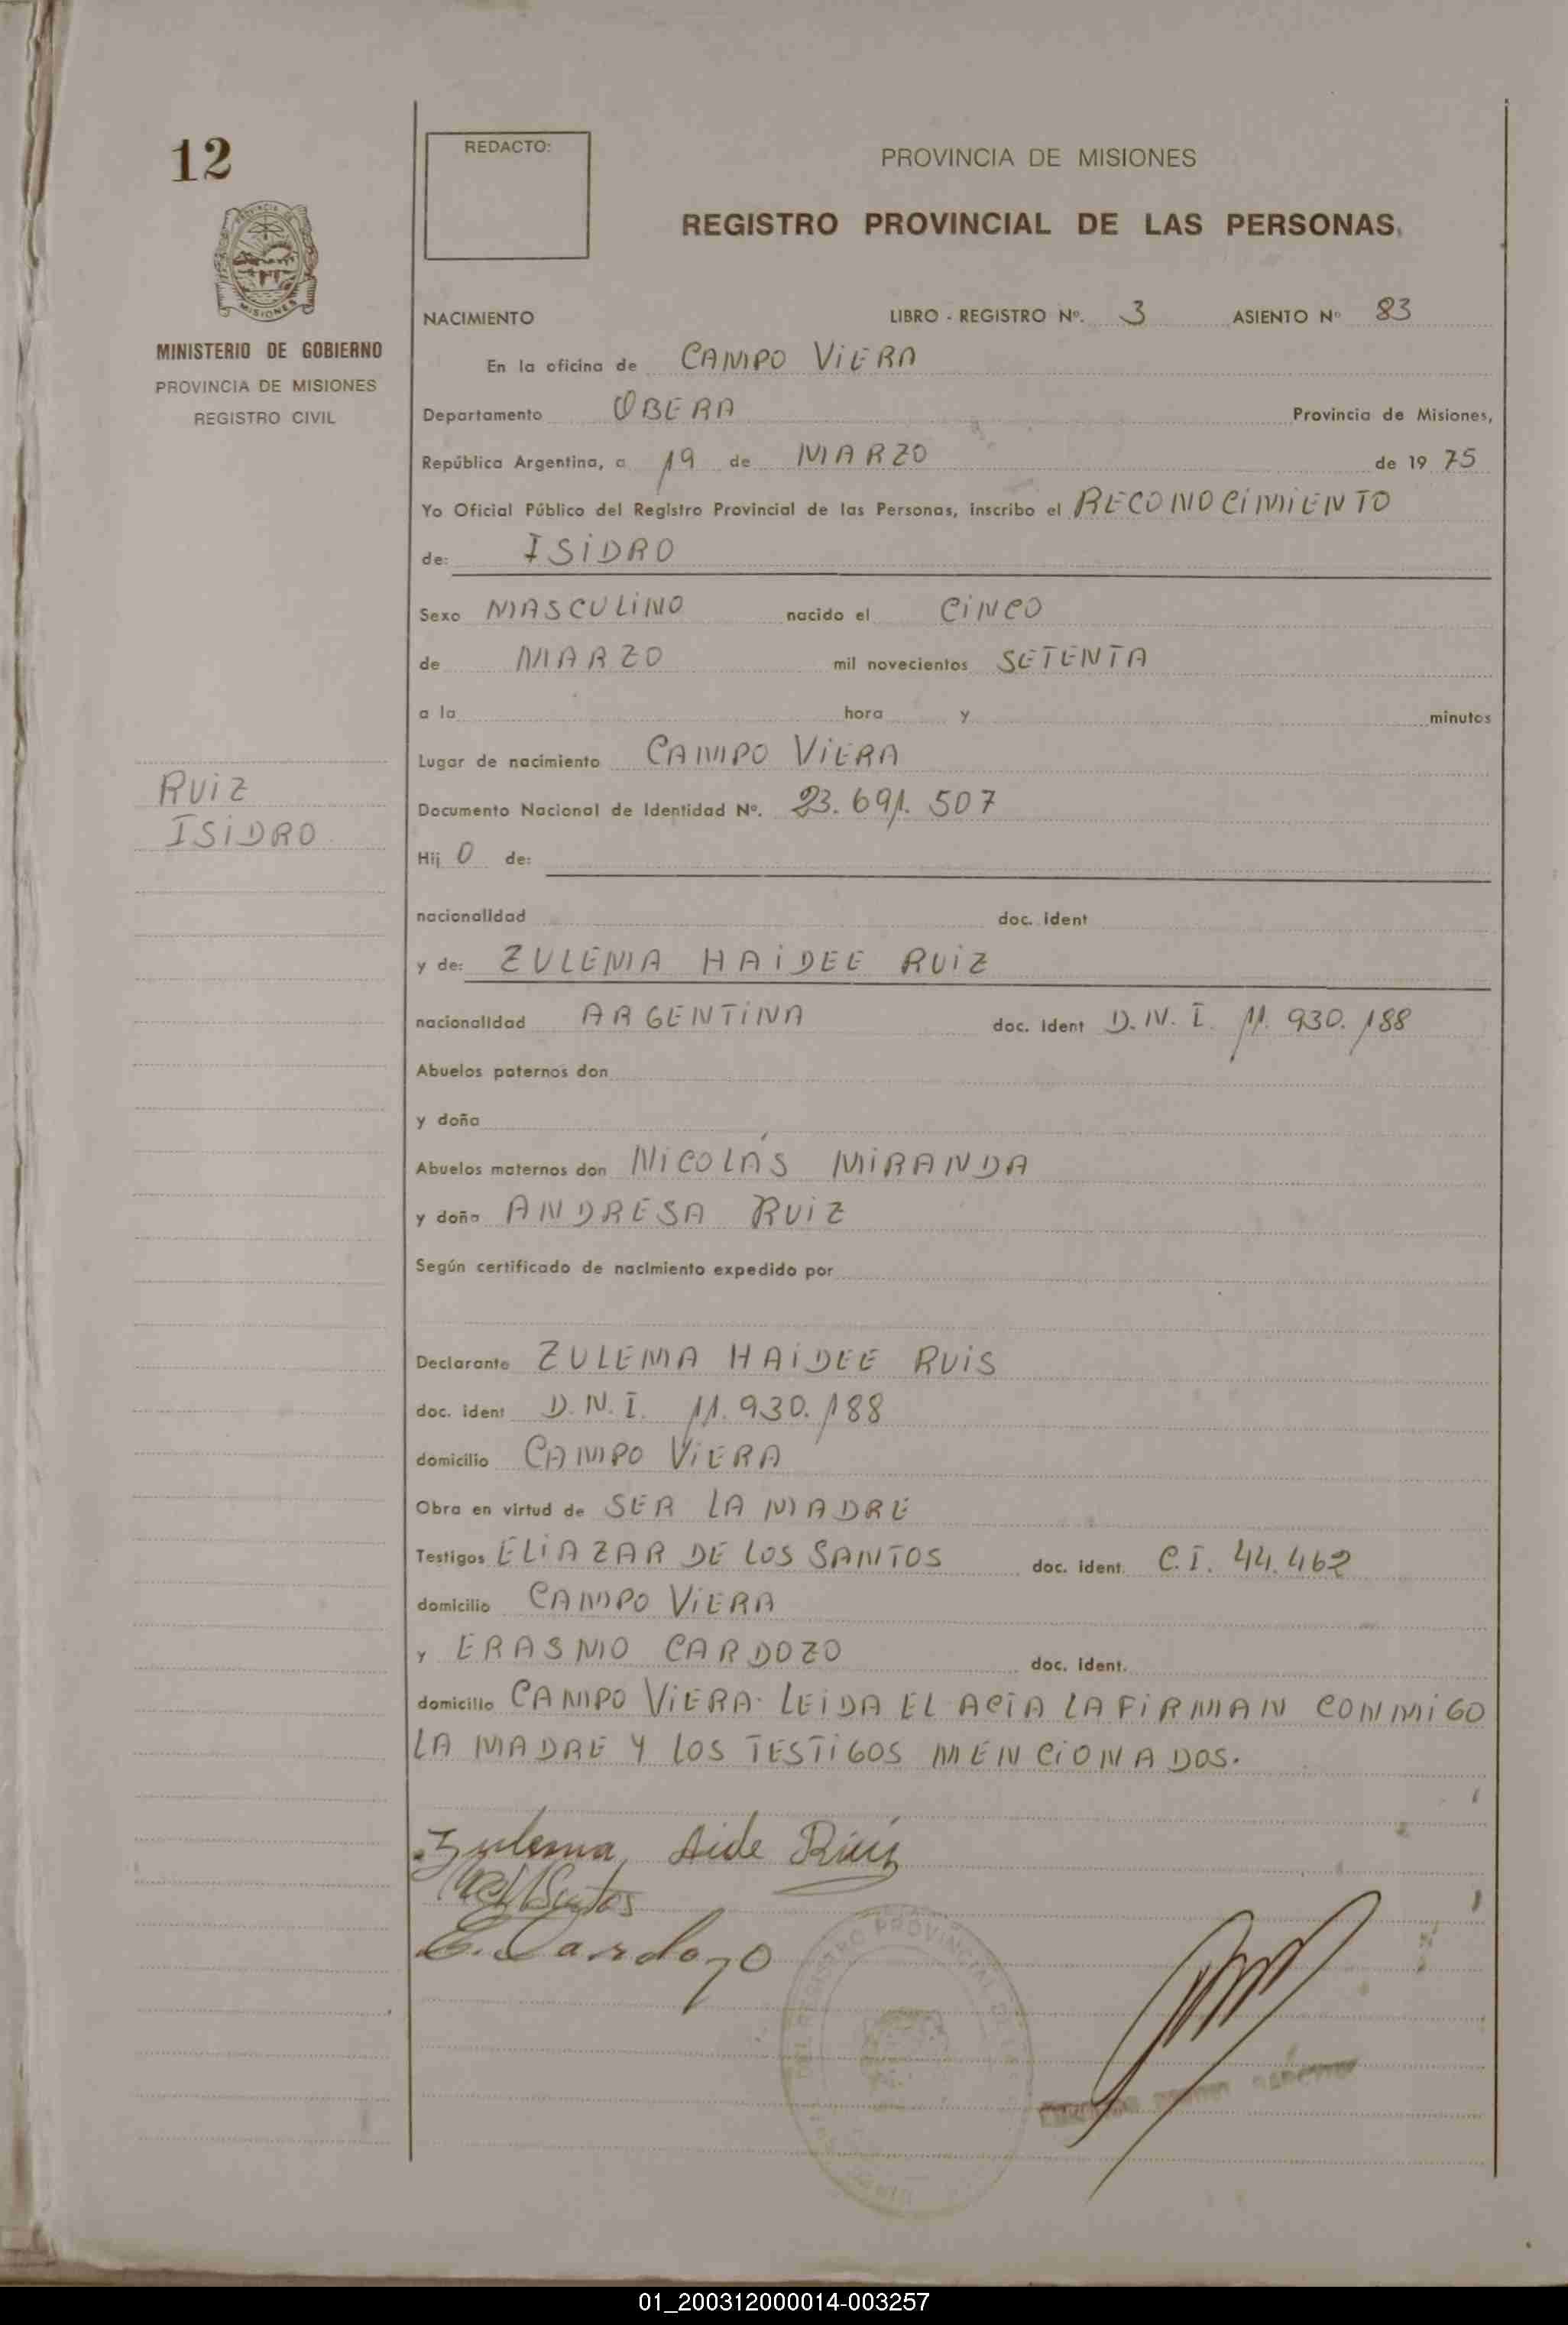 12
REDACTO:
PROVINCIA DE MISIONES
REGISTRO PROVINCIAL DE LAS PERSONAS.
MISIONES
MINISTERIO DE GOBIERNO
PROVINCIA DE MISIONES
REGISTRO CIVIL
NACIMIENTO LIBRO - REGISTRO Nº. 3 ASIENTO Nº 83
En la oficina de CAMPO ViERA
Departamento OBERA Provincia de Misiones,
República Argentina, a 19 de MARZO de 19 75
Yo Oficial Público del Registro Provincial de las Personas, inscribo el RECONOCiMiENTO
de: ISiDRO
Sexo MASCULiNO nacido el CiNCO
de MARZO mil novecientos SETENTA
a la hora y minutos
Lugar de nacimiento CAMPO ViERA
Documento Nacional de Identidad Nº. 23.691.507
Hij O de:
RUiZ
ISiDRO
nacionalidad doc. ident
y de: ZULEMA HAiDEE RUiZ
nacionalidad ARGENTiNA doc. ident D.N.I. 11.930.188
Abuelos paternos don
y doña
Abuelos maternos don NiCOLÁS MiRANDA
y doña ANDRESA RUiZ
Según certificado de nacimiento expedido por
Declarante ZULEMA HAiDEE RUiS
doc. ident D.N.I. 11.930.188
domicilio CAMPO ViERA
Obra en virtud de SER LA MADRE
Testigos ELiAZAR DE LOS SANTOS doc. ident. C.I. 44.462
domicilio CAMPO ViERA
y ERASMO CARDOZO doc. ident.
domicilio CAMPO ViERA. LEiDA EL ACTA LA FiRMAN CONMiGO
LA MADRE Y LOS TESTiGOS MENCiONADOS.
Zulema Aide Ruiz
E. Cardozo
DEL REGISTRO PROVINCIAL DE LAS
01_200312000014-003257